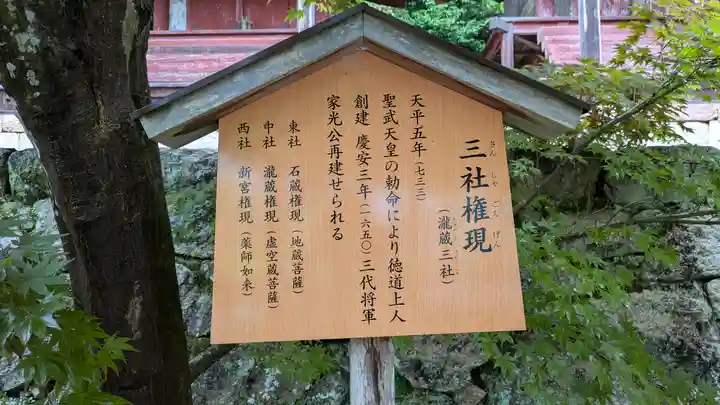 三社権現
さんしゃごんげん
(瀧蔵三社)
天平五年(七三三)
聖武天皇の勅命により徳道上人
創建 慶安三年(一六五〇)三代将軍
家光公再建せられる
東社 石蔵権現(地蔵菩薩)
中社 瀧蔵権現(虚空蔵菩薩)
西社 新宮権現(薬師如来)